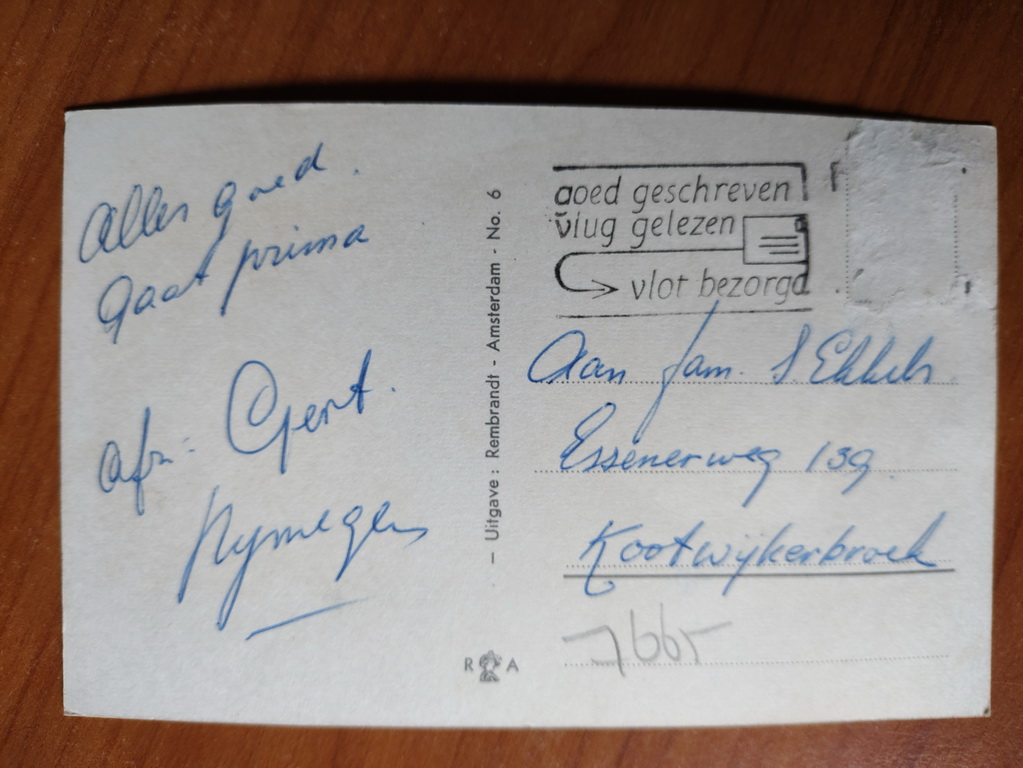 Alles goed.
Gaat prima
afz: Gerrit.
Nymegen
– Uitgave: Rembrandt - Amsterdam - No. 6
R A
goed geschreven
vlug gelezen
vlot bezorgd
Aan fam. S. Ekkels
Essenerweg 139
Kootwijkerbroek
7665